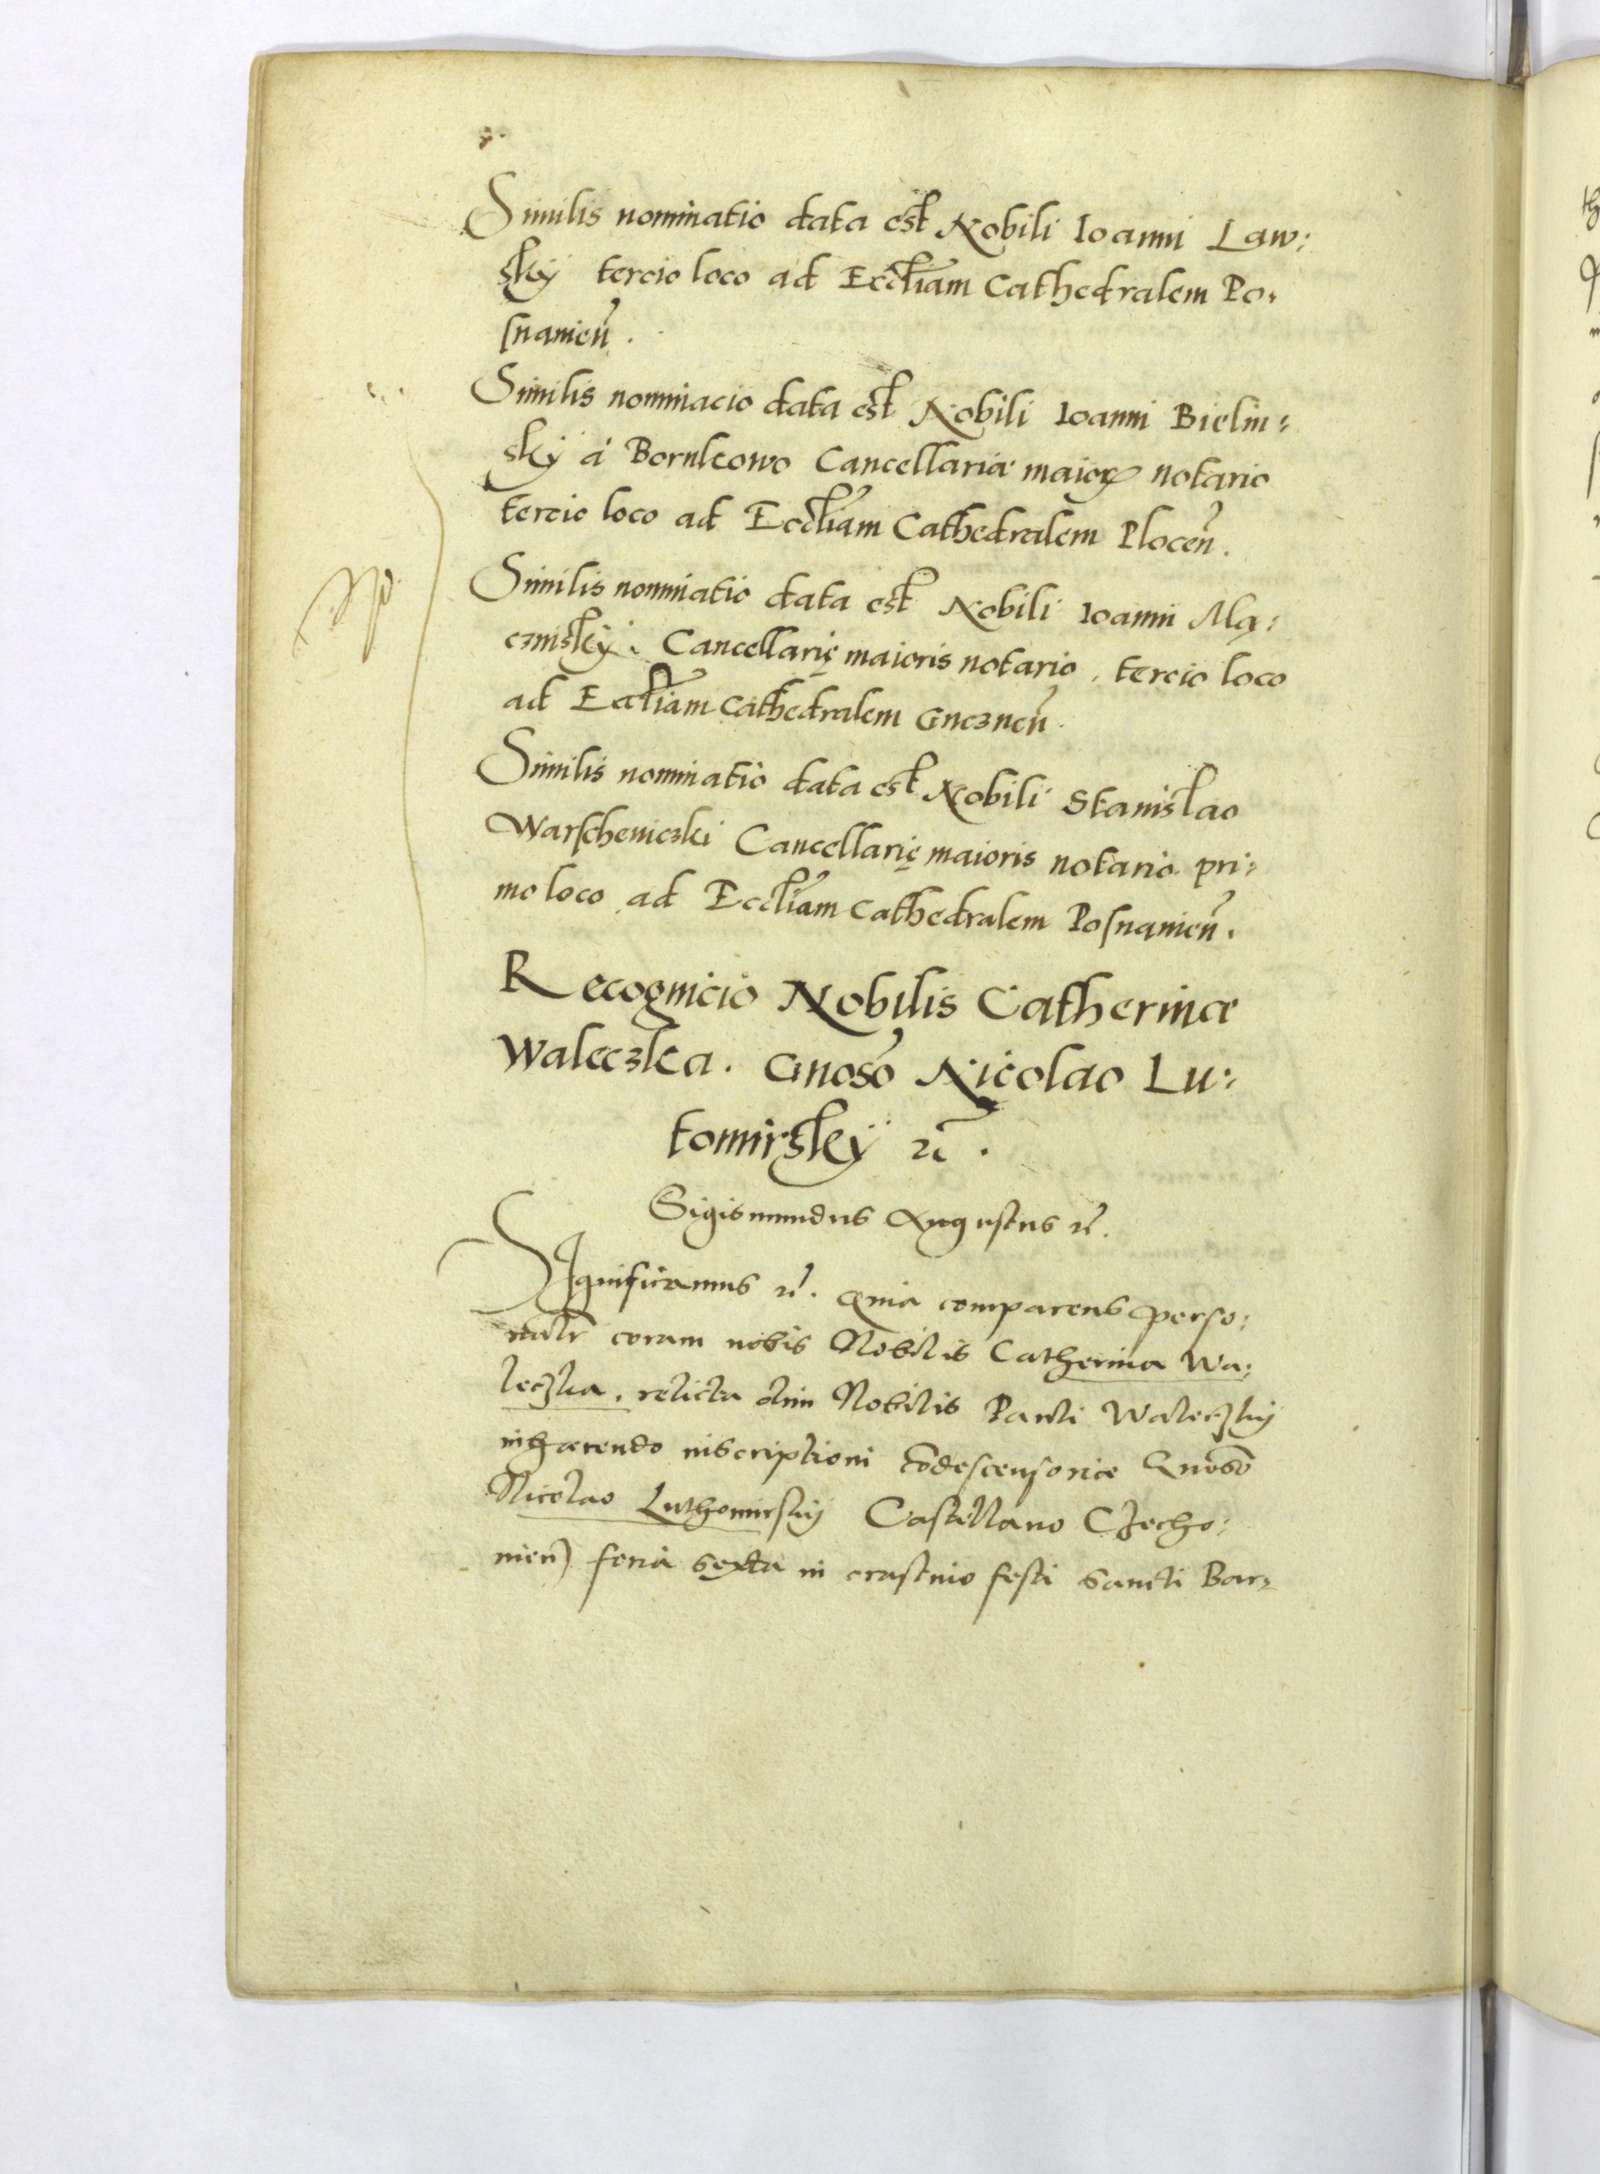 Similis nominatio data est Nobili Ioanni Law:
sky tercio loco ad Eccl̃iam Cathedralem Po:
snanien̄.
Similis nominacio data est Nobili Ioanni Bielin:
sky à Bornkowo Cancellariæ maioꝝ notario
tercio loco ad Eccl̃iam Cathedralem Plocen̄.
Similis nominatio data est Nobili Ioanni Mą:
cznisky. Cancellarię maioris notario, tercio loco
ad Eccl̃iam Cathedralem Gneznen̄.
Similis nominatio data est Nobili Stanislao
Warscheniczki Cancellarię maioris notario pri:
mo loco ad Eccl̃iam Cathedralem Posnanien̄.
Recognicio Nobilis Catherinæ
Waleczka. Gnoso̅ Nicolao Lu:
tomirsky ꝛc̃.
Sigismundus Augustus ꝛc̃.
SIgnificamus ꝛc̃. quia comparens perso:
nalr̃ coram nobis Nobilis Catherina Wa:
leczka, relicta olim Nobilis Pauli Waleczky
inhærendo inscriptioni co̅descensoriæ Gnoso̅
Nicolao Luthomirsky Castellano Czecho:
nien̄) feria sexta in crastino festi Sancti Bar: